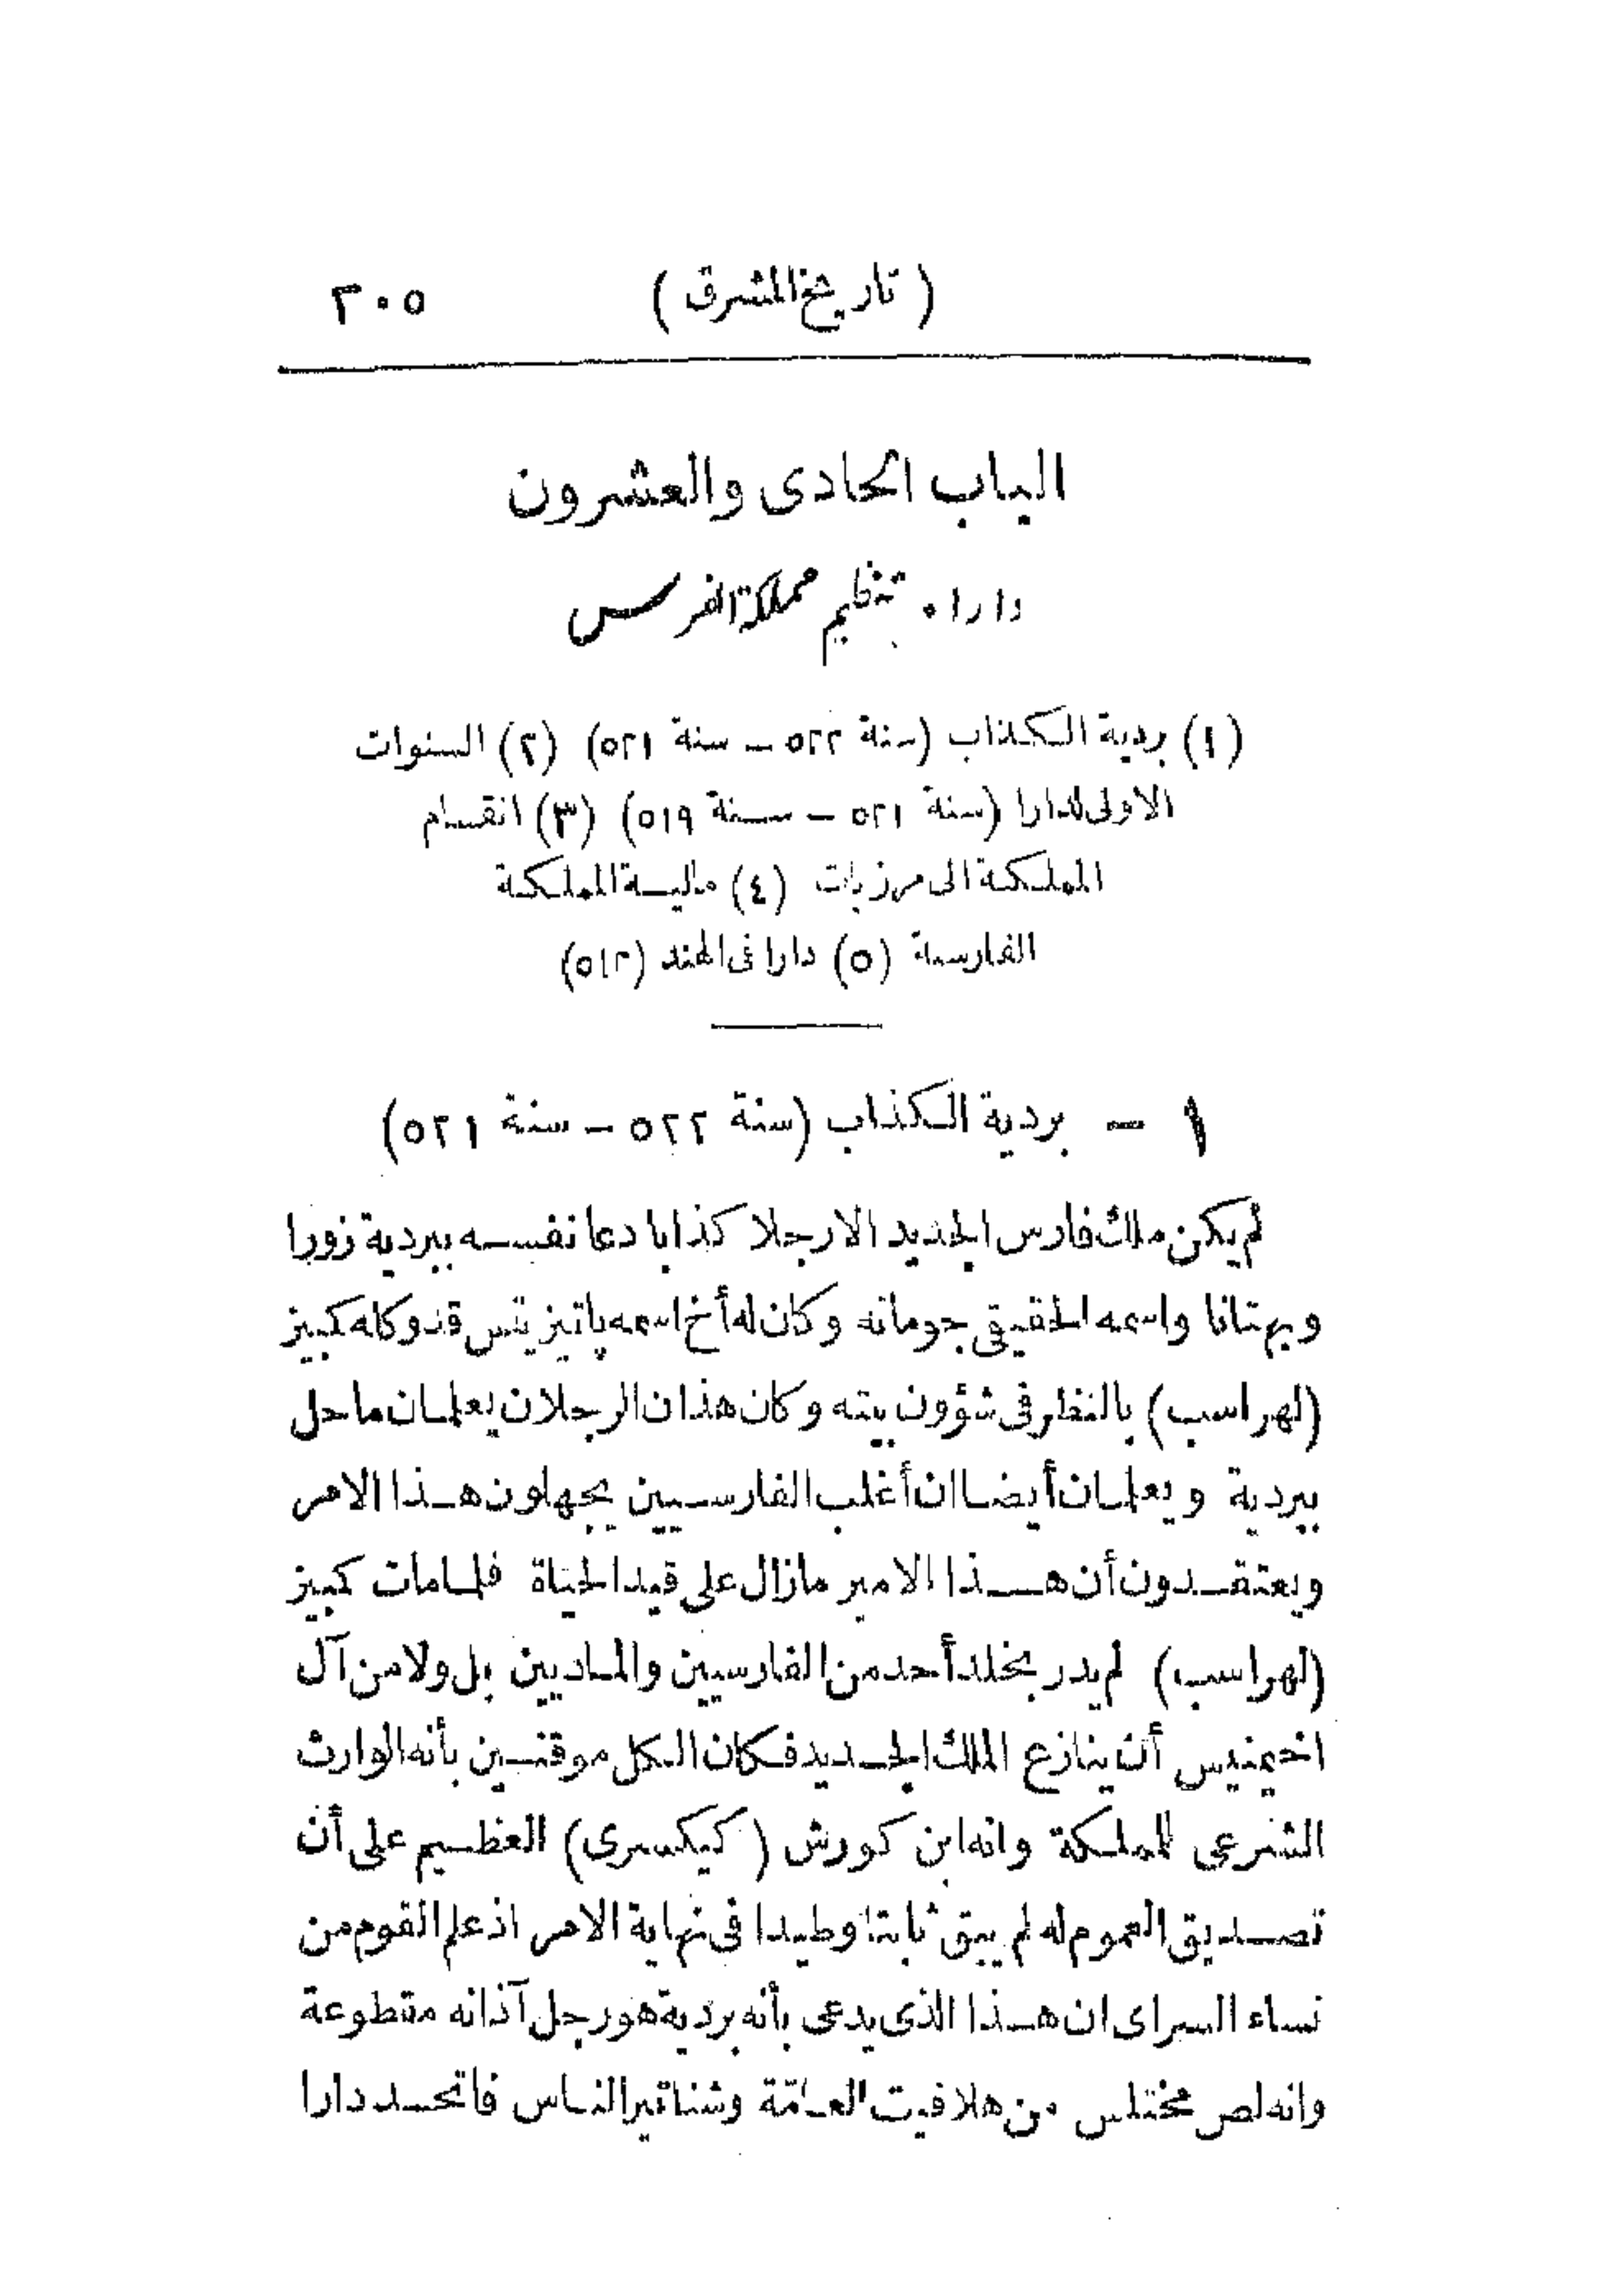 ( تاريخ المشرق ) ٣٠٥
الباب الحادى والعشرون
دارا . تنظيم مملكة الفرس
(١) بردية الكذاب (سنة ٥٢٢ - سنة ٥٢١) (٢) السنوات
الاولى لدارا (سنة ٥٢١ - سنة ٥١٩) (٣) انقسام
المملكة الى مرزبات (٤) مالية المملكة
الفارسية (٥) دارا فى الهند (٥١٢)
١ - بردية الكذاب (سنة ٥٢٢ - سنة ٥٢١)
لم يكن ملك فارس الجديد الا رجلا كذابا دعا نفسه ببردية زورا
وبهتانا واسمه الحقيقى جوماته وكان له أخ اسمه پاتيزيتس قد وكله كمبيز
(لهراسب) بالنظر فى شؤون بيته وكان هذان الرجلان يعلمان ما حل
ببردية ويعلمان أيضا ان أغلب الفارسيين يجهلون هذا الامر
ويعتقدون أن هذا الامير مازال على قيد الحياة فلما مات كمبيز
(لهراسب) لم يدر بخلد أحد من الفارسيين والماديين بل ولا من آل
اخيمنيس أن ينازع الملك الجديد فكان الكل موقنين بأنه الوارث
الشرعى للمملكة وانه ابن كورش (كيكسرى) العظيم على أن
تصديق العموم له لم يبق ثابتا وطيدا فى نهاية الامر اذ علم القوم من
نساء السراى ان هذا الذى يدعى بأنه بردية هو رجل آذانه مقطوعة
وانه لص مختلس من هلافيت العامّة وشناتير الناس فاتحد دارا